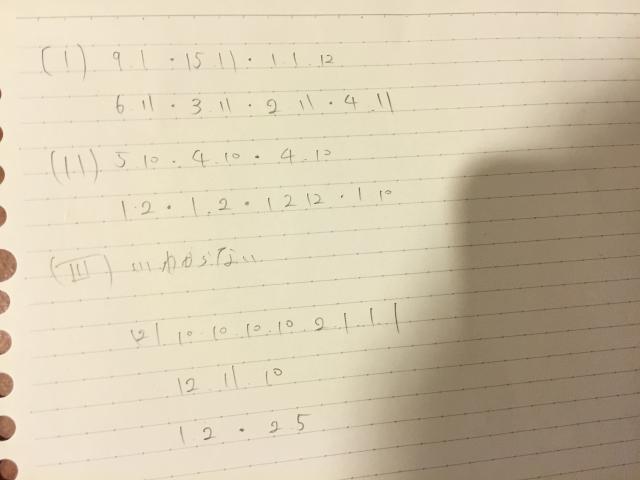 (1) 9 1 · 15 11 · 1 1 12
6 11 · 3 11 · 2 11 · 4 11
(11) 5 10 · 4 10 · 4 10
1 2 · 1 2 · 1 2 12 · 1 10
(III) わからない
121 10 10 10 10 2 1 1 1
12 11 10
1 2 · 2 5